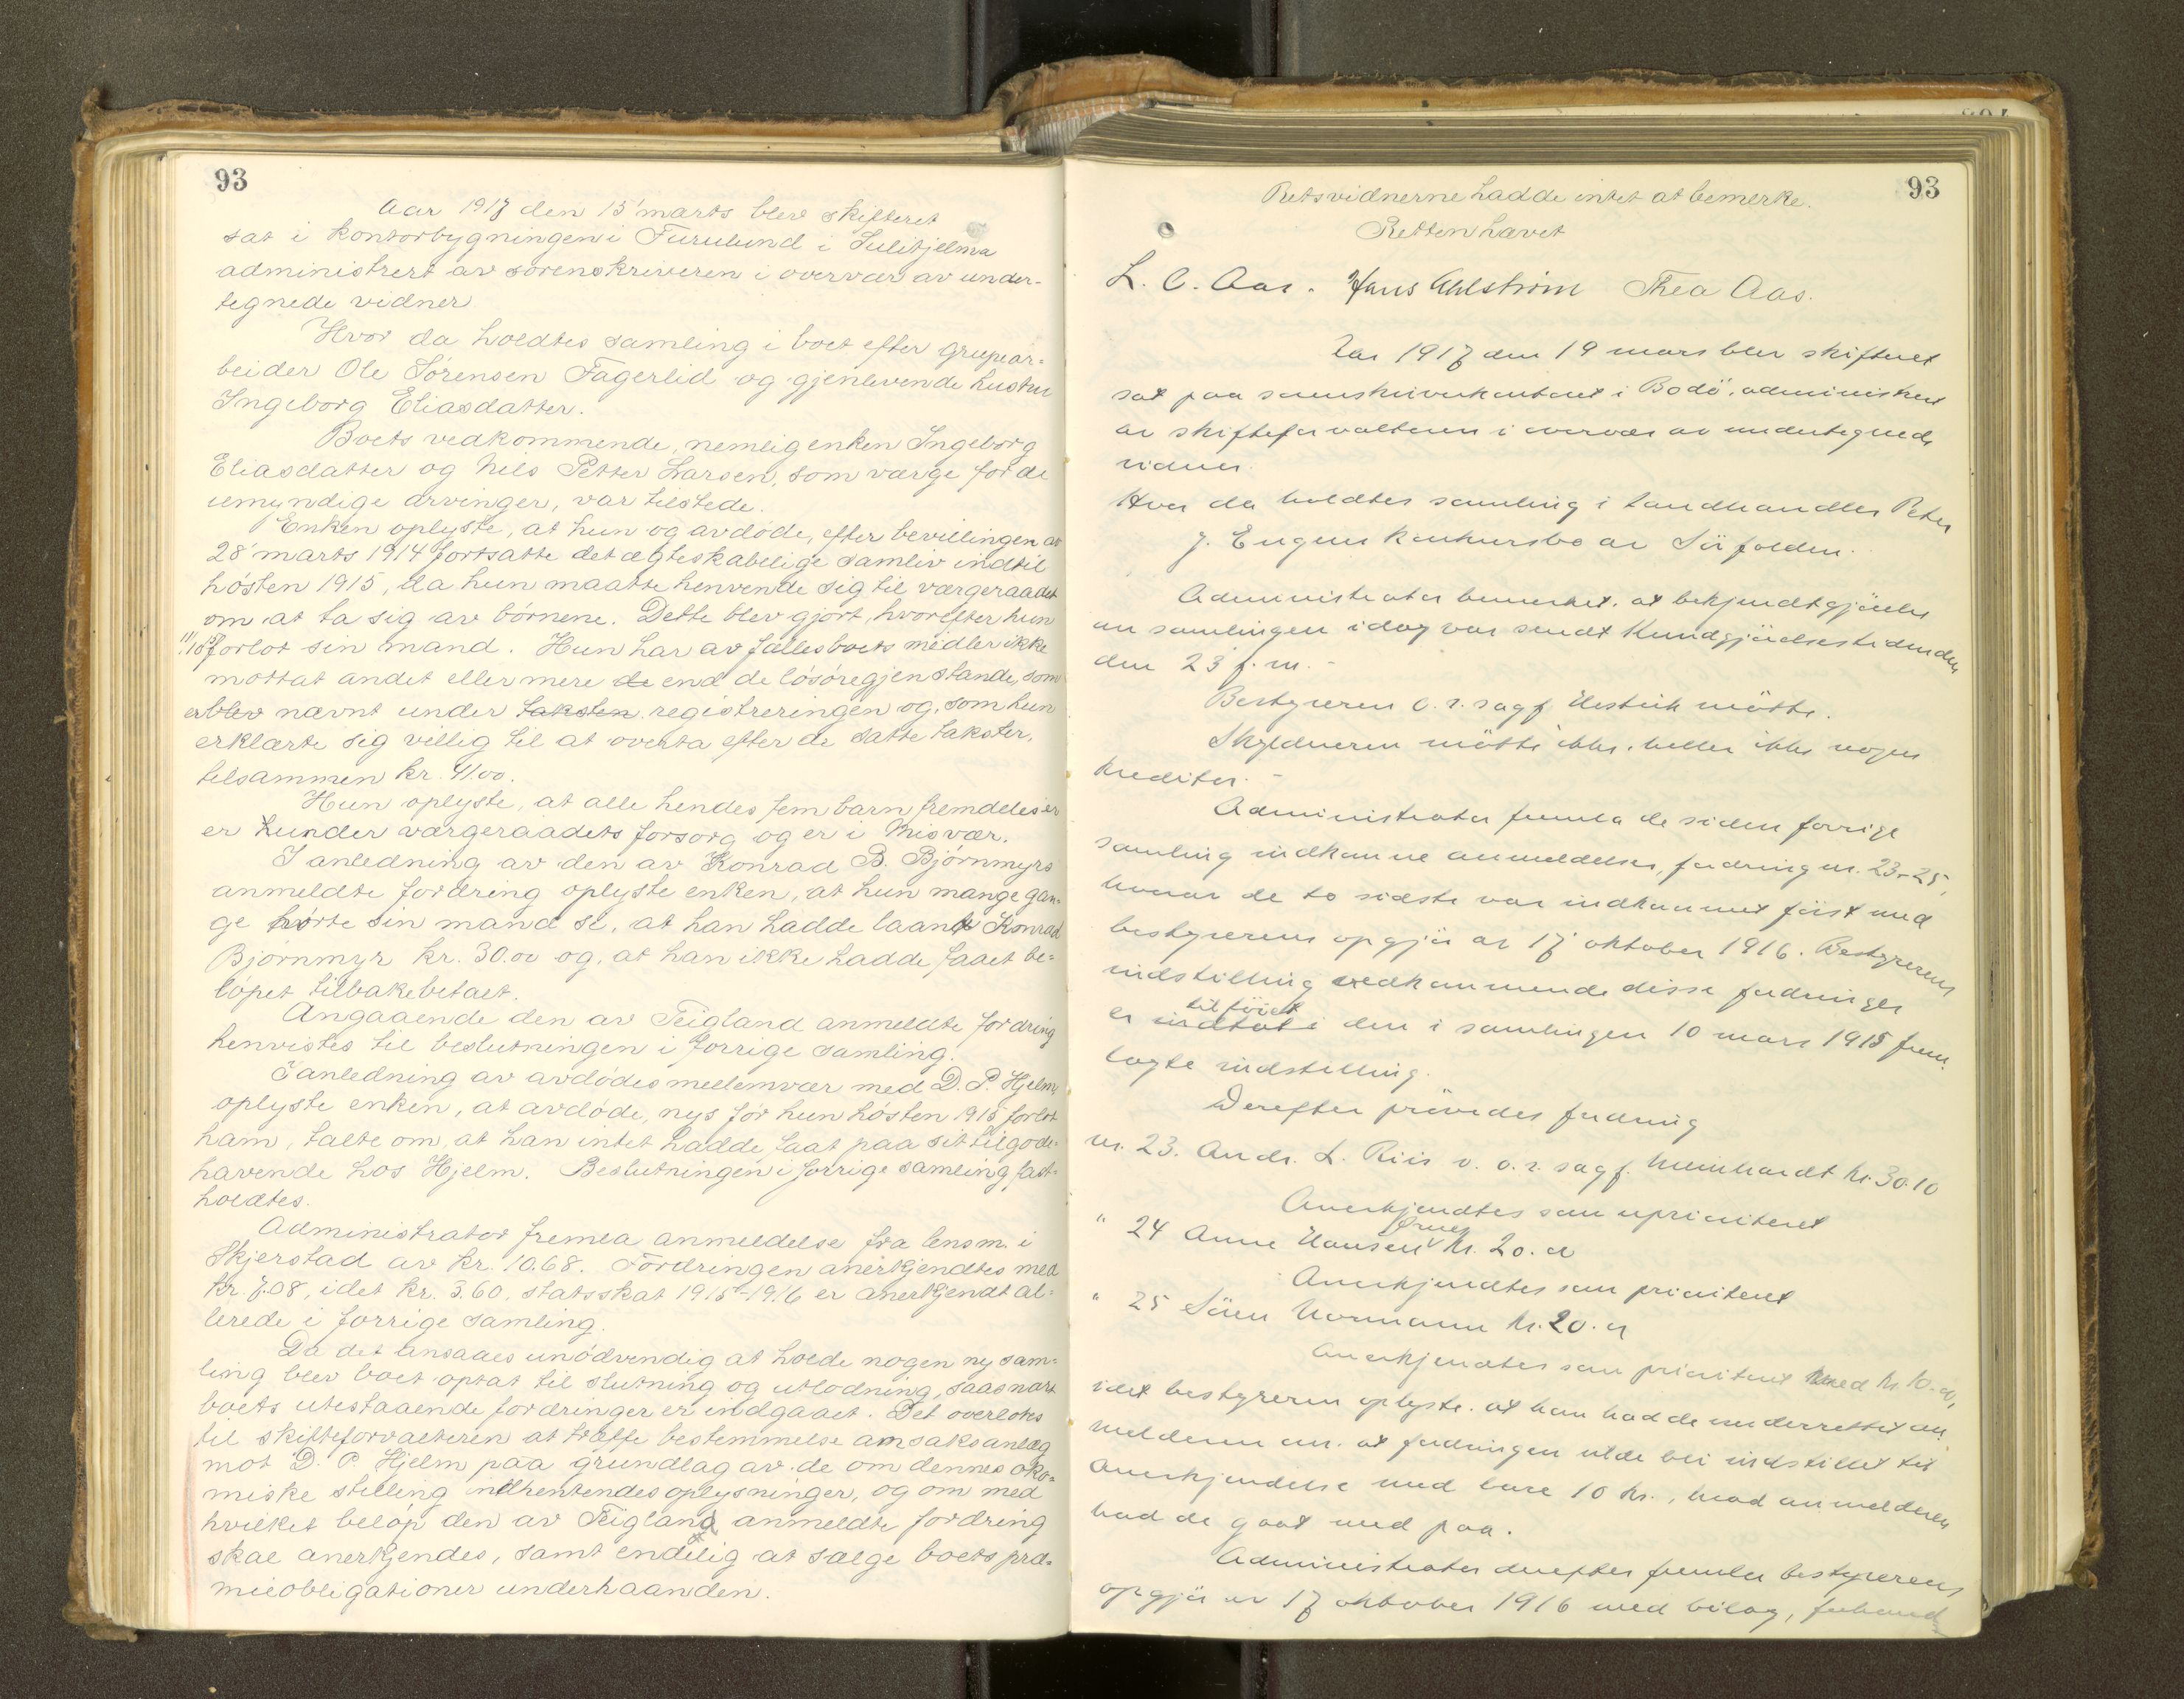 93
Aar 1917 den 15 marts blev skifteret
sat i kontorbygningen i Furulund i Sulitjelma
administrert av sorenskriveren i overvær av under-
tegnede vidner
Hvor da holdtes samling i boet efter grupear-
beider Ole Sørensen Fagerlid og gjenlevende hustru
Ingeborg Eliasdatter.
Boets vedkommende, nemlig enken Ingeborg
Eliasdatter og Nils Petter Larsen, som værge for de
umyndige arvinger, var tilstede.
Enken oplyste, at hun og avdøde, efter bevillingen av
28 marts 1914 fortsatte det ægteskabelige samliv indtil
høsten 1915, da hun maatte henvende sig til værgeraadet
om at ta sig av børnene. Dette blev gjort, hvorefter hun
forlot sin mand. Hun har av fællesboets midler ikke
mottat andet eller mere de end de løsøregjenstande, som
er blev nævnt under taksten registreringen og, som hun
erklærte sig villig til at overta efter de satte takster,
tilsammen kr. 41.00.
Hun oplyste, at alle hendes fem barn fremdeles er
er under værgeraadets forsorg og er i Misvær.
I anledning av den av Konrad B. Bjørnmyrs
anmeldte fordring oplyste enken, at hun mange gan-
ge hørte sin mand si, at han hadde laant Konrad
Bjørnmyr kr. 30.00 og, at han ikke hadde faaet be-
løpet tilbakebetalt.
Angaaende den av Teigland anmeldte fordring
henvistes til beslutningen i forrige samling.
I anledning av avdødes mellemvær med D. P. Hjelm,
oplyste enken, at avdøde, nys før hun høsten 1915 forlot
ham, talte om, at han intet hadde faat paa sit tilgode-
havende hos Hjelm. Beslutningen i forrige samling fast-
holdtes.
Administrator fremla anmeldelse fra lensm. i
Skjerstad av kr. 10.68. Fordringen anerkjendtes med
kr. 7.08, idet kr. 3.60, statsskat 1915-1916 er anerkjendt al-
lerede i forrige samling.
Da det ansaaes unødvendig at holde nogen ny sam-
ling blev boet optat til slutning og utlodning, saasnart
boets utestaaende fordringer er indgaaet. Det overlotes
til skifteforvalteren at træffe bestemmelse om saksanlæg
mot D. P. Hjelm paa grundlag av de om dennes øko-
miske stilling indhentendes oplysninger, og om med
hvilket beløp den av Teigland anmeldte fordring
skal anerkjendes, samt endelig at sælge boets præ-
mieobligationer underhaanden.
93
Retsvidnerne hadde intet at bemerke.
Retten hævet
L. C. Aas. Hans Ahlström Thea Aas.
Aar 1917 den 19 mars blev skifteret
sat paa sorenskriverkontoret i Bodø, administrert
av skifteforvalteren i overvær av undertegnede
vidner.
Hvor da holdtes samling i landhandler Peter
J. Engens konkursbo av Sørfolden.
Administrator bemerket, at bekjendtgjørelse
om samlingen idag var sendt Kundgjørelsestidenden
den 23 f. m. -
Bestyreren o. r. sagf. møtte.
Skyldneren møtte ikke, heller ikke nogen
kreditor. -
Administrator fremla de siden forrige
samling indkomne anmeldelser, fordring nr. 23-25,
hvorav de to sidste var indkommet først med
bestyrerens opgjør av 17 oktober 1916. Bestyrerens
indstilling vedkommende disse fordringer
er indtat tilføiet i den i samlingen 10 mars 1915 frem-
lagte indstilling.
Derefter prøvedes fordring
nr. 23. Andr. L. Riis v. o. r. sagf. Meinhardt kr. 30.10
Anerkjendtes som uprioriteret
" 24 Anne Hansen kr. 20.00
Anerkjendtes som prioriteret
" 25 Søren Normann kr. 20.00
Anerkjendtes som prioriteret med kr. 10.00,
idet bestyreren oplyste, at han hadde underrettet an-
melderen om, at fordringen vilde bli indstillet til
anerkjendelse med bare 10 kr., hvad anmelderen
hadde gaat med paa.
Administrator derefter fremla bestyrerens
opgjør av 17 oktober 1916 med bilag, forhand